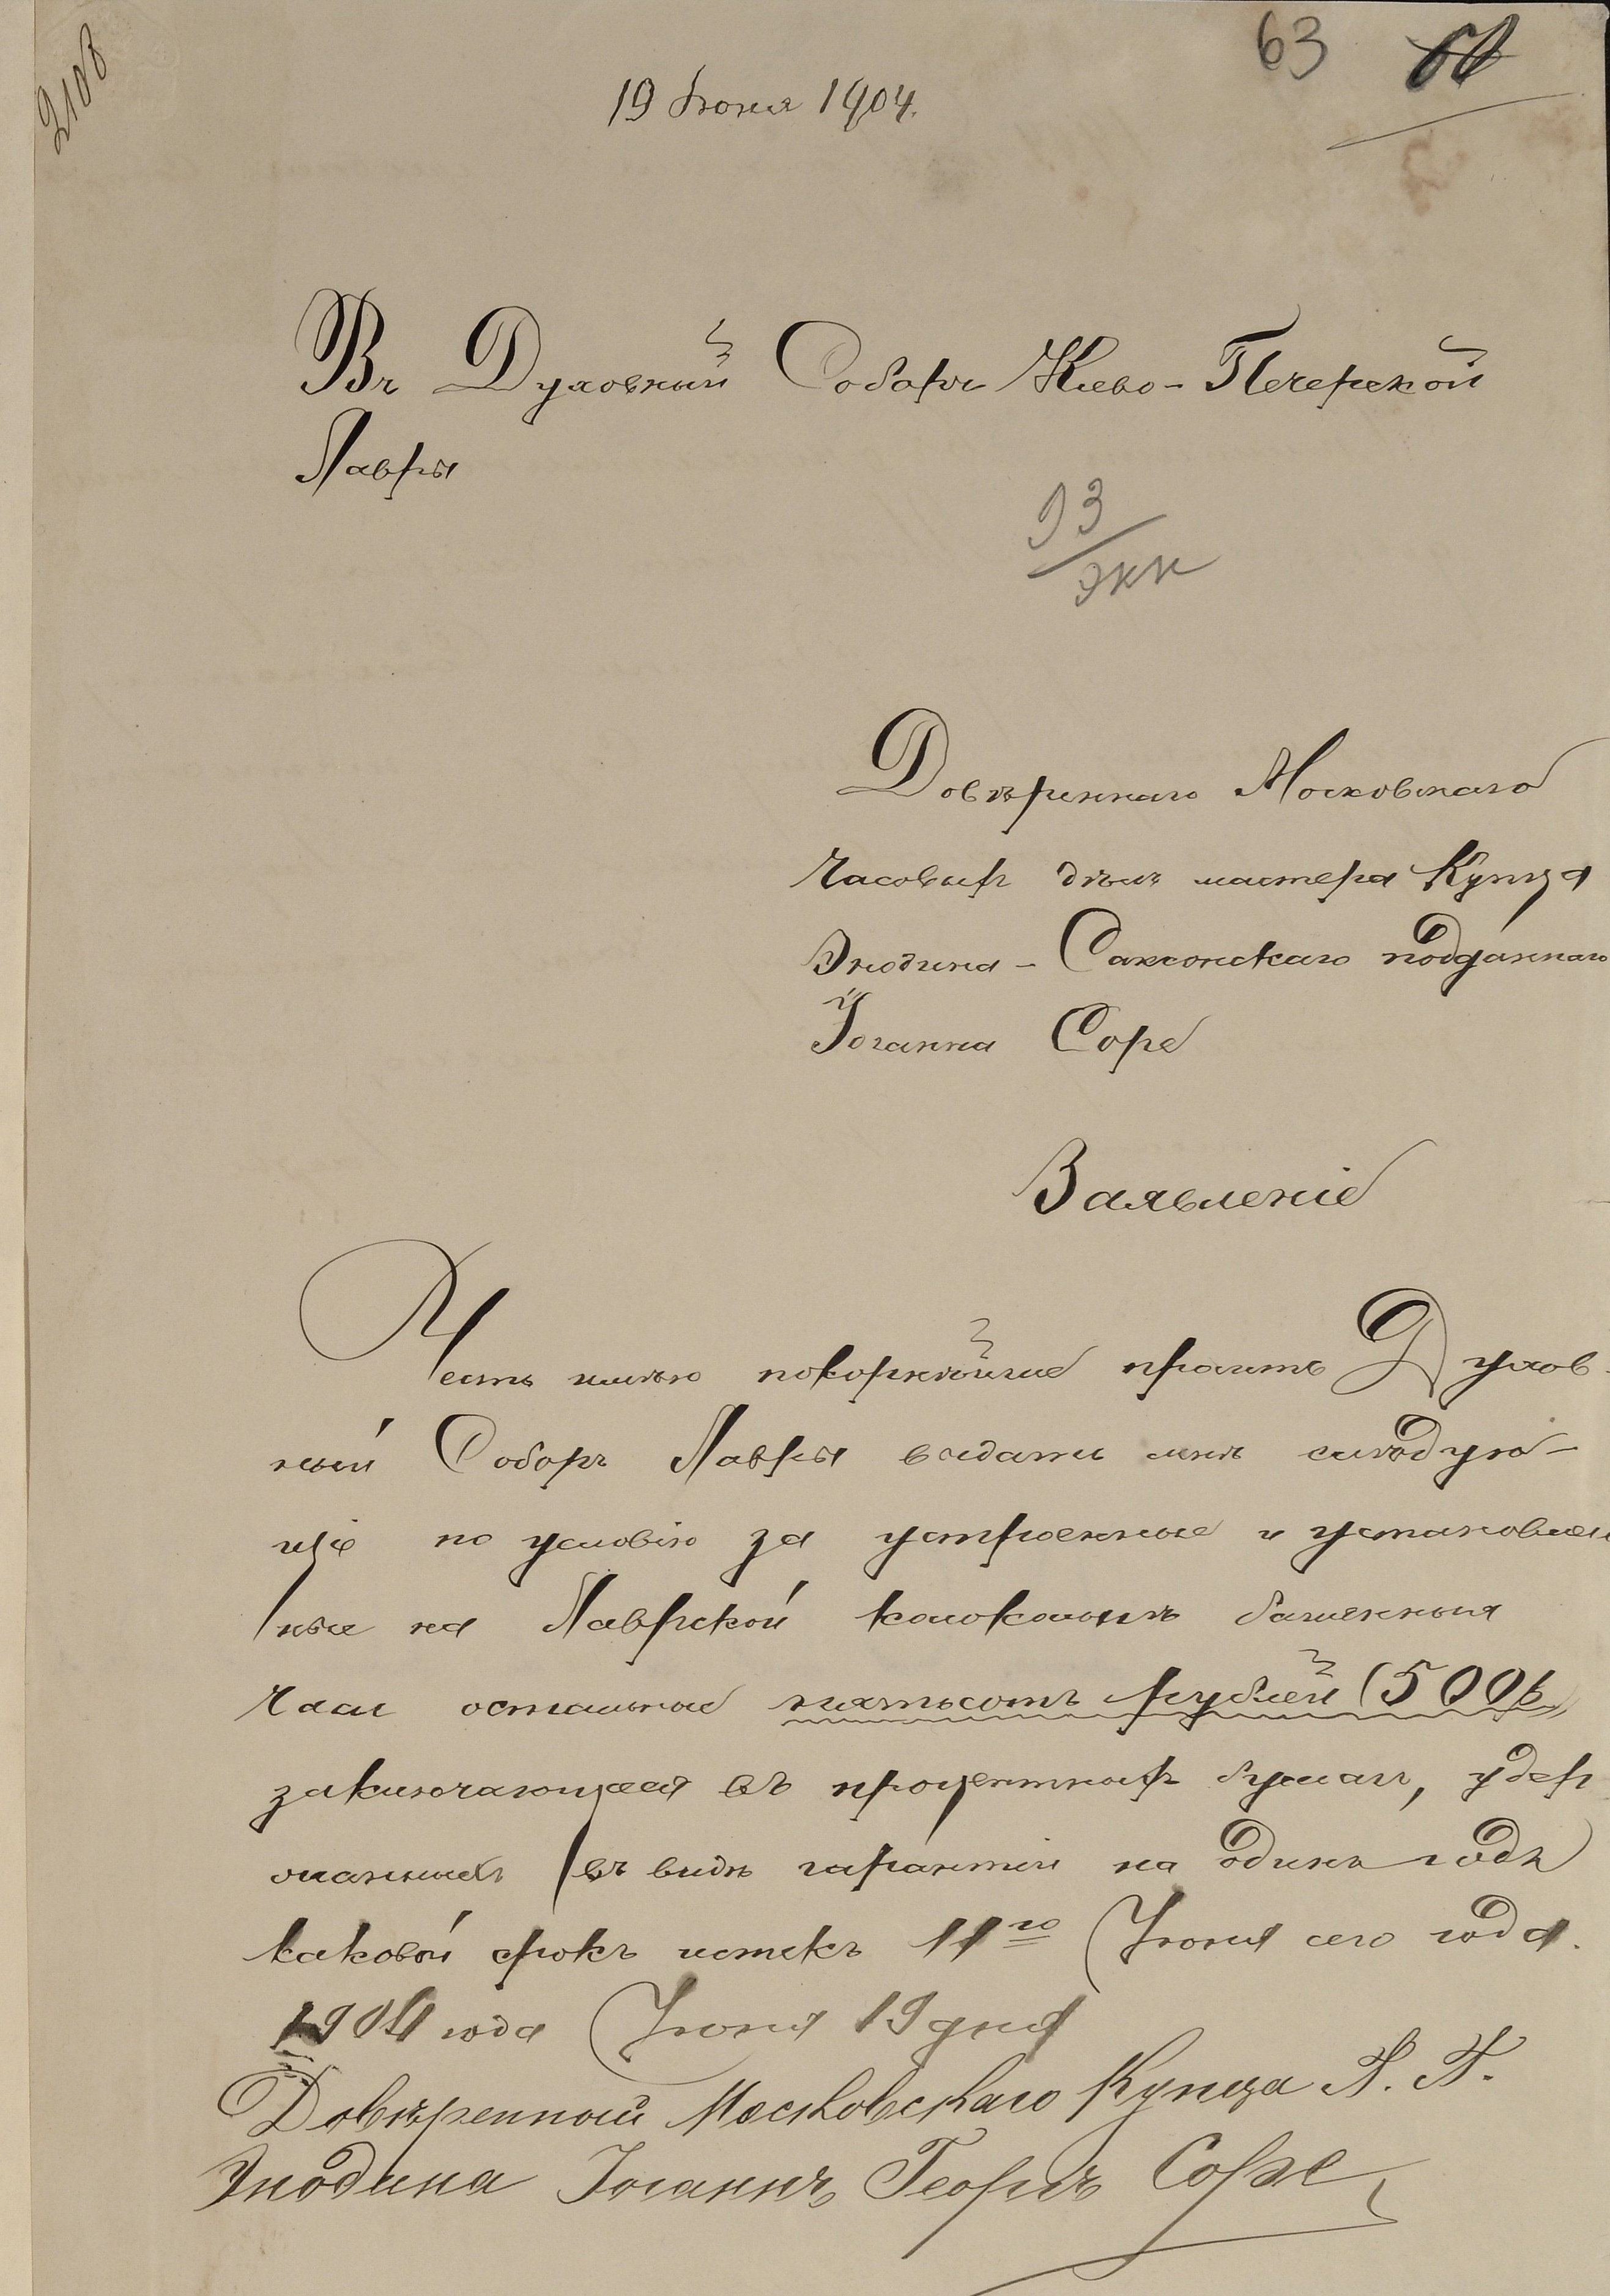 2108
63
19 Іюня 1904.
Въ Духовный Соборъ Кіево-Печерской
Лавры
93
экк
Довѣреннаго Московскаго
часовыхъ дѣлъ мастера Купца
Энодина - Саксонскаго подданнаго
Іоганна Соре
Заявленіе
Честь имѣю покорнѣйше просить Духов-
ный Соборъ Лавры выдать мнѣ слѣдую-
щіе по условію за устроенные и установлен
ные на Лаврской колокольнѣ башенныя
часы остальные пятьсотъ рублей (500 р.)
заключающіеся въ процентныхъ бумагъ, удер
жанныхъ въ видѣ гарантіи на одинъ годъ
каковый срокъ истекъ 11го Іюня сего года.
1904 года Іюня 19 дня
Довѣренный Московскаго Купца А. А.
Энодина Іоганнъ Георгъ Соре